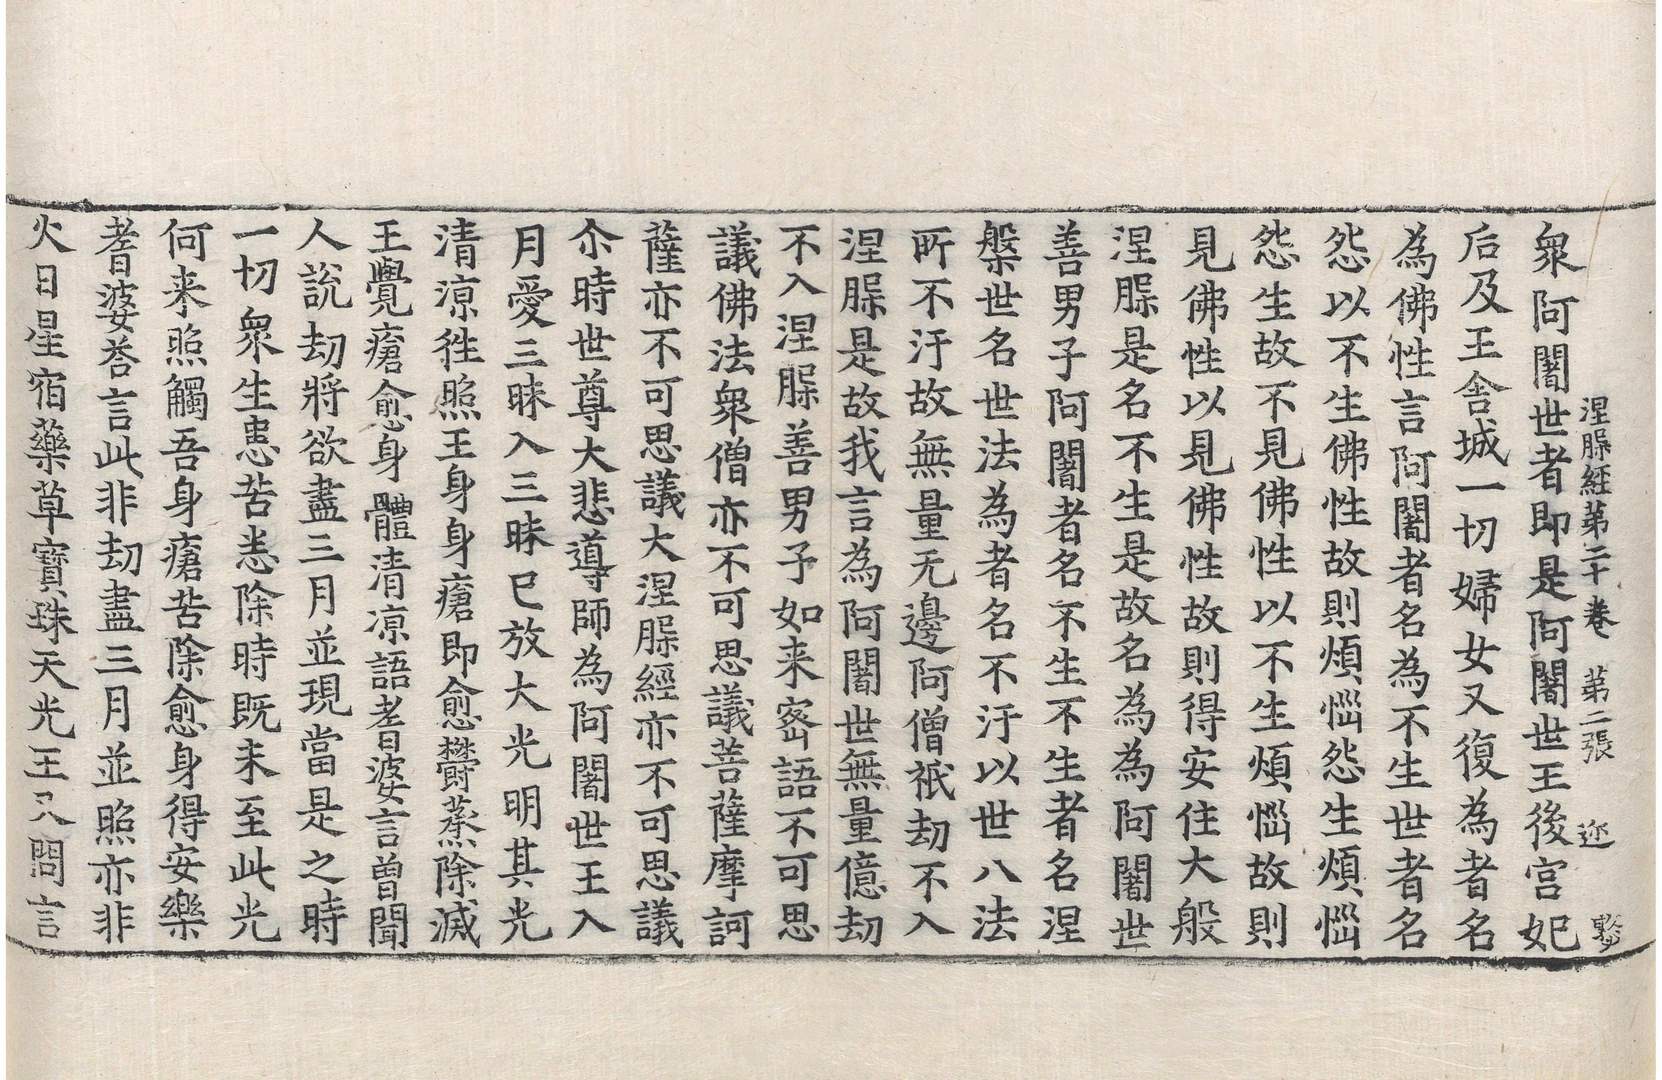 涅槃經第二十卷　第二張　迩
衆阿闍世者即是阿闍世王後宮妃
后及王舍城一切婦女又復為者名
為佛性言阿闍者名為不生世者名
怨以不生佛性故則煩惱怨生煩惱
怨生故不見佛性以不生煩惱故則
見佛性以見佛性故則得安住大般
涅槃是名不生是故名為為阿闍世
善男子阿闍者名不生不生者名涅
槃世名世法為者名不汙以世八法
所不汙故無量无邊阿僧祇劫不入
涅槃是故我言為阿闍世無量億劫
不入涅槃善男子如来宻語不可思
議佛法衆僧亦不可思議菩薩摩訶
薩亦不可思議大涅槃經亦不可思議
尒時世尊大悲導師為阿闍世王入
月愛三昧入三昧已放大光明其光
清凉徃照王身身瘡即愈欝蒸除滅
王覺瘡愈身體清凉語耆婆言曽聞
人說劫將欲盡三月並現當是之時
一切衆生患苦悉除時既未至此光
何来照觸吾身瘡苦除愈身得安樂
耆婆荅言此非劫盡三月並照亦非
火日星宿藥草寶珠天光王又問言